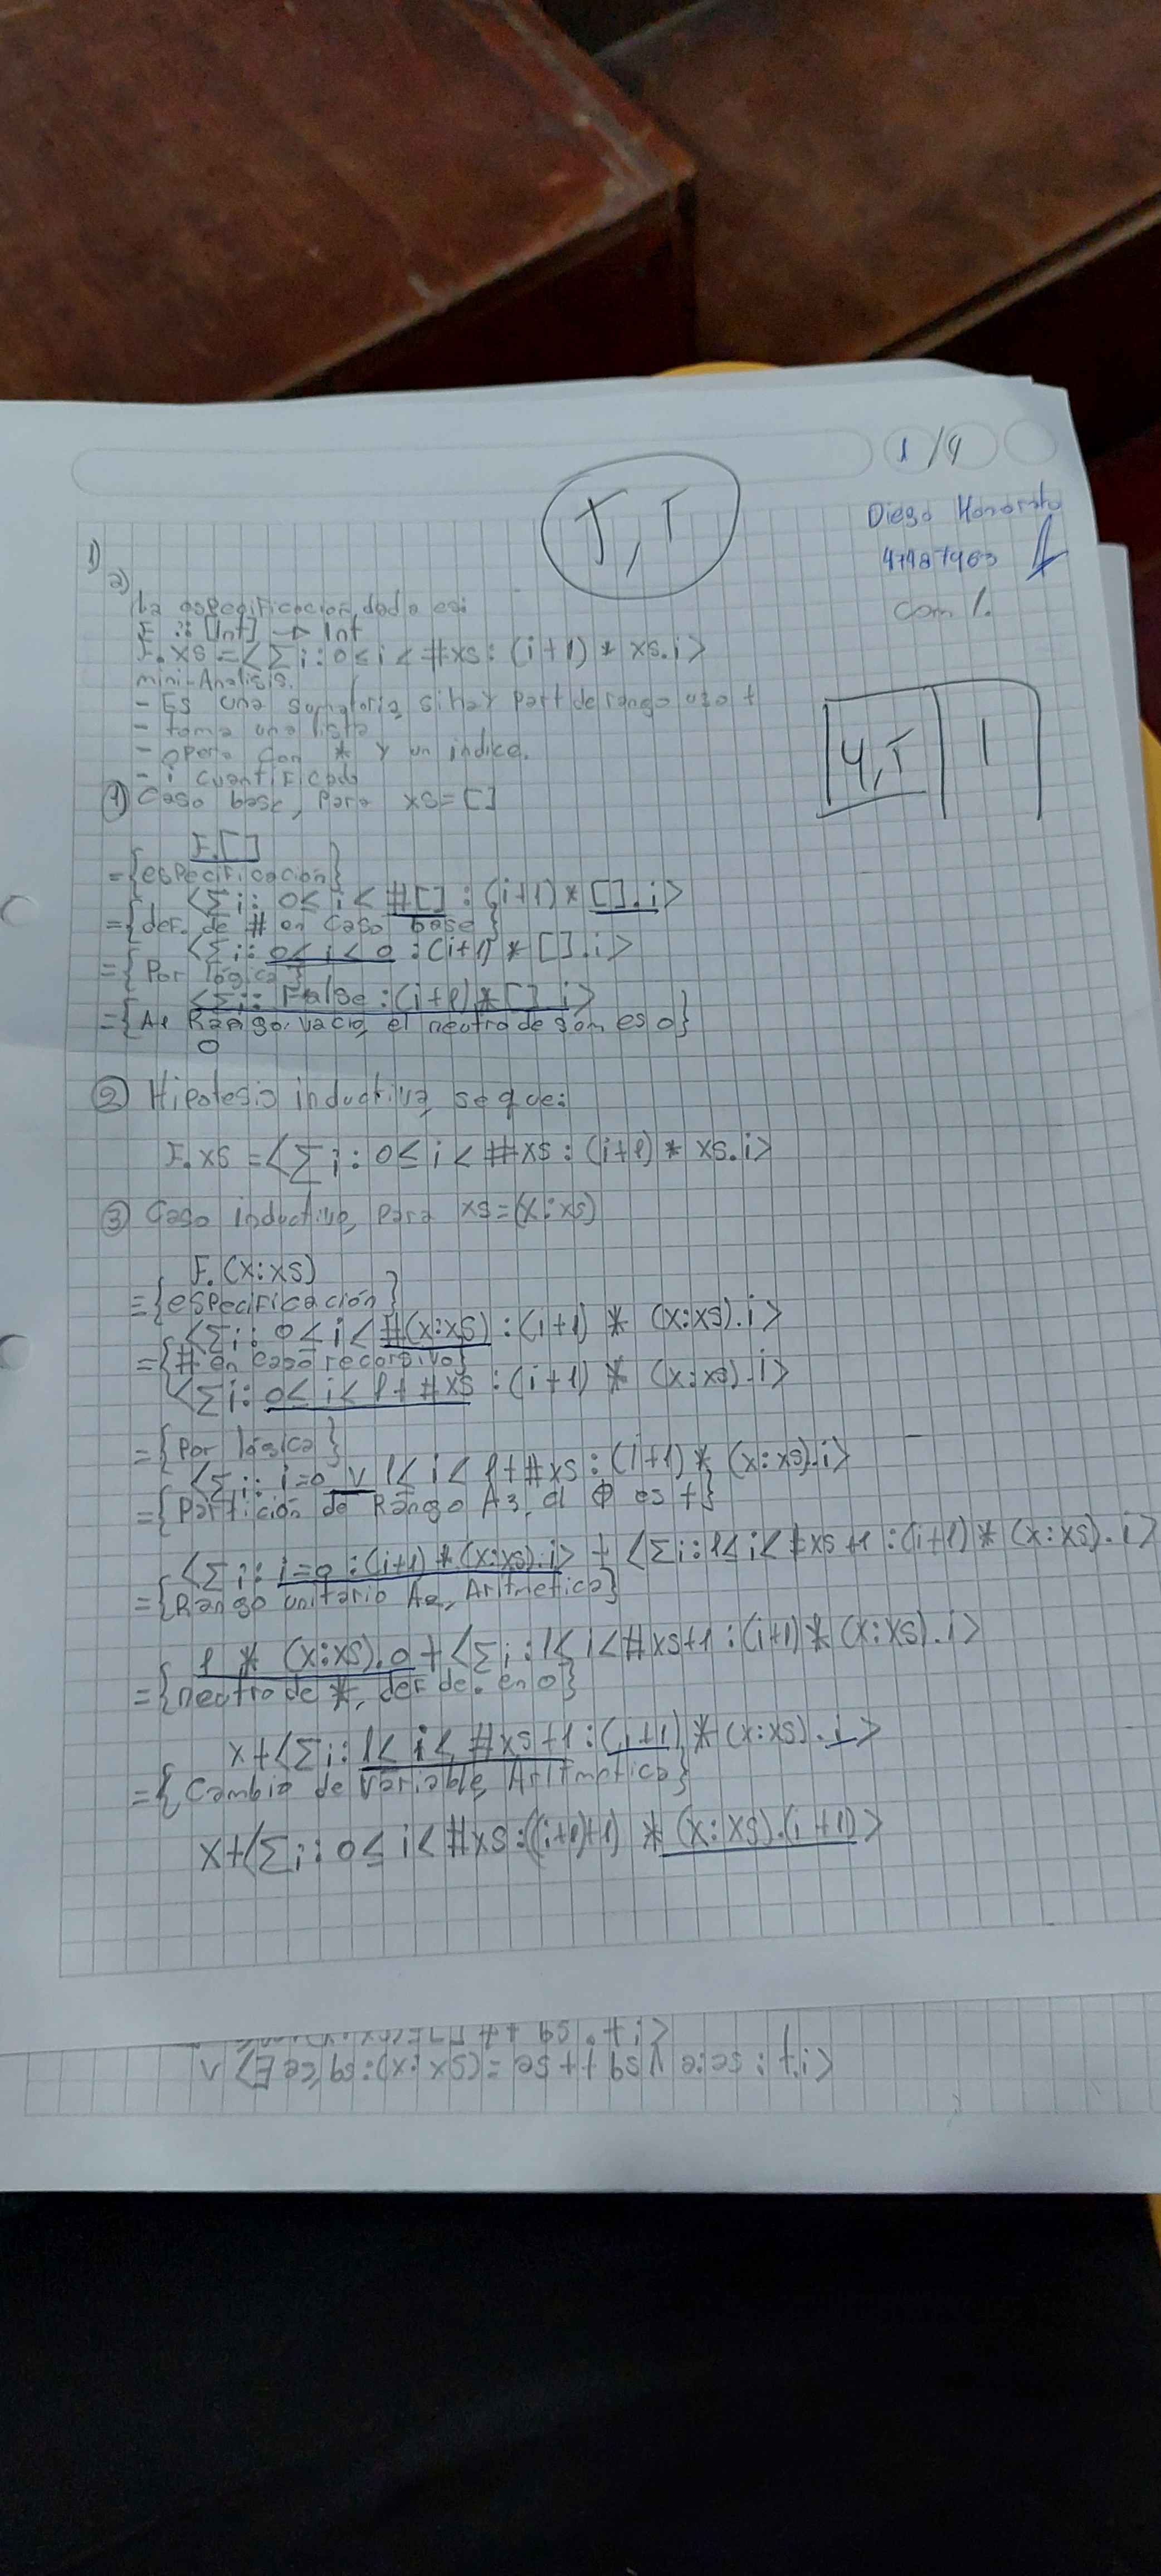 1/9
5,5
Diego Honorato
47487963
com 1.
1)
a)
La especificacion dada es:
F :: [Int] → Int
F.xs = <∑i : 0 ≤ i < #xs : (i+1) * xs.i>
mini-Analisis.
- Es una sumatoria, si hay part de rango uso +
- toma una lista
- opera con * y un indice.
- i cuantificado
4,5 | 1
① Caso base, para xs = []
F.[]
={especificación}
<∑i : 0 ≤ i < #[] : (i+1) * [].i>
={def. de # en caso base}
<∑i : 0 ≤ i < 0 : (i+1) * [].i>
={Por lógica}
<∑i : False : (i+1) * [].i>
={A1 Rango vacio, el neutro de som es 0}
0
② Hipotesis inductiva, se que:
F.xs = <∑i : 0 ≤ i < #xs : (i+1) * xs.i>
③ Caso inductivo, para xs = (x:xs)
F.(x:xs)
={especificación}
<∑i : 0 ≤ i < #(x:xs) : (i+1) * (x:xs).i>
={# en caso recursivo}
<∑i : 0 ≤ i < 1 + #xs : (i+1) * (x:xs).i>
={Por lógica}
<∑i : i=0 ∨ 1 ≤ i < 1+#xs : (i+1) * (x:xs).i>
={Partición de Rango A3, el ⊕ es +}
<∑i : i=0 : (i+1) * (x:xs).i> + <∑i : 1 ≤ i < #xs+1 : (i+1) * (x:xs).i>
={Rango unitario A2, Aritmetica}
1 * (x:xs).0 + <∑i : 1 ≤ i < #xs+1 : (i+1) * (x:xs).i>
={neutro de *, def de . en 0}
x + <∑i : 1 ≤ i < #xs+1 : (i+1) * (x:xs).i>
={Cambio de variable, Aritmetica}
x + <∑i : 0 ≤ i < #xs : ((i+1)+1) * (x:xs).(i+1)>